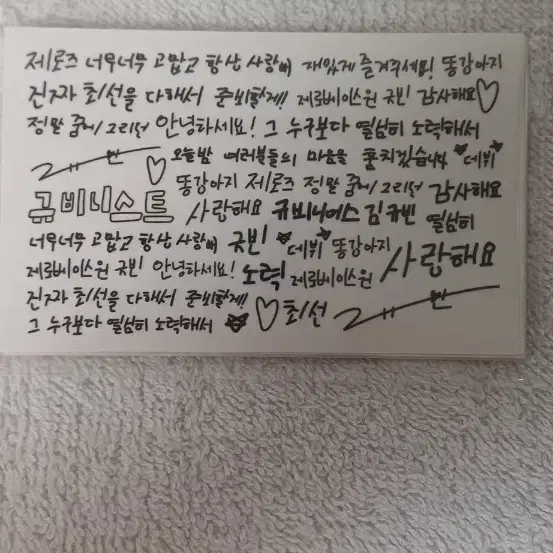 제로즈 너무너무 고맙고 항상 사랑해 재밌게 즐겨주세요! 똥강아지
진짜 최선을 다해서 준비할게!! 제로베이스원 규빈 감사해요♡
정말 꿈에 그리던 안녕하세요! 그 누구보다 열심히 노력해서
♡ 오늘밤 여러분들의 마음을 훔치겠습니다 데뷔
규비니스트 똥강아지 제로즈 정말 꿈에 그리던 감사해요
사랑해요 규비니어스 김규빈 열심히
너무너무 고맙고 항상 사랑해 규빈 데뷔 똥강아지
제로베이스원 규빈 안녕하세요! 노력 제로베이스원 사랑해요
진짜 최선을 다해서 준비할게!! ♡ 최선
그 누구보다 열심히 노력해서